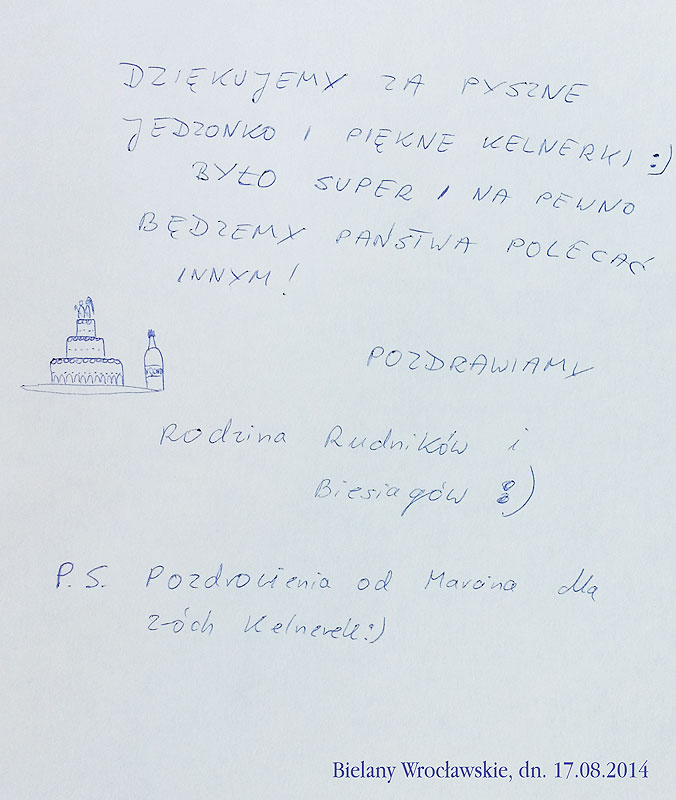 DZIĘKUJEMY ZA PYSZNE
JEDZONKO I PIĘKNE KELNERKI :)
BYŁO SUPER I NA PEWNO
BĘDZEMY PAŃSTWA POLECAĆ
INNYM!
POZDRAWIAMY
Rodzina Rudników i
Biesiagów :)
P.S. Pozdrowienia od Marcina dla
2-óch Kelnerek:)
Bielany Wrocławskie, dn. 17.08.2014